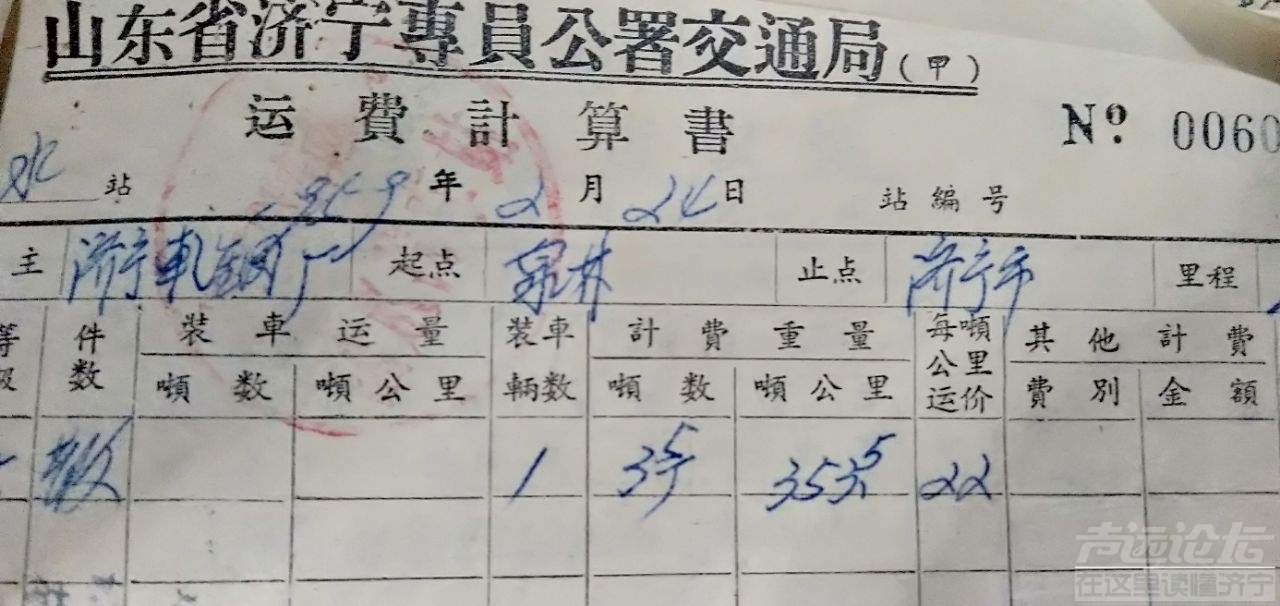 山东省济宁專員公署交通局(甲)
运費計算書 Nº 0060
水站 1959年2月24日 站編号
主 济宁軋钢厂 起点 泉林 止点 济宁市 里程
件数 装車运量 装車輌数 計費重量 每噸公里运价 其他計費
噸数 噸公里 噸数 噸公里 費別 金額
散 1 35 353.5 22
声远论坛
在这里读懂济宁